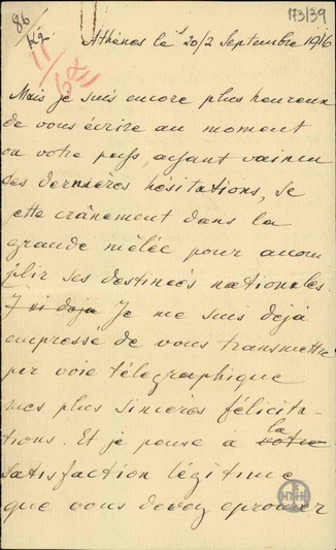 86
173/39
Athènes le 20/2 Septembre 1916
Mais je suis encore plus heureux
de vous écrire au moment
ou votre pays, ayant vaincu
des dernières hésitations, se
jette crânement dans la
grande mêlée pour accom
plir ses destinées nationales.
Je me suis déjà
empressé de vous transmettre
par voie télégraphique
mes plus sincères félicita-
tions. Et je pense à la votre
satisfaction légitime
que vous devez eprouver